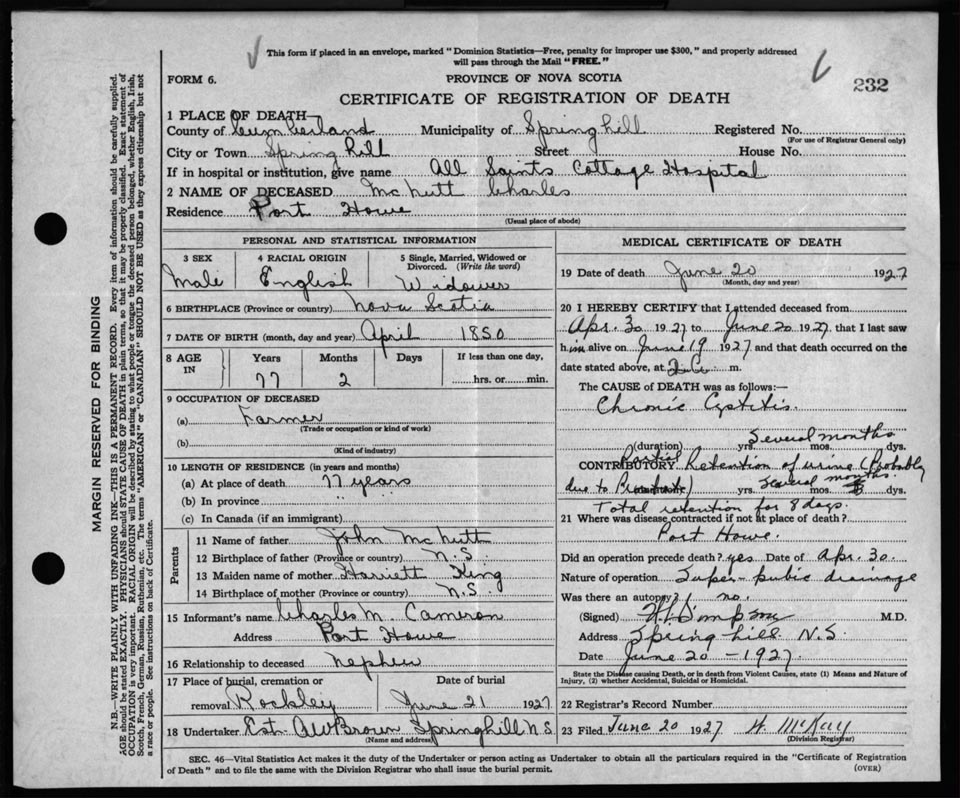 This form if placed in an envelope, marked "Dominion Statistics—Free, penalty for improper use $300," and properly addressed
will pass through the Mail "FREE."
FORM 6.
PROVINCE OF NOVA SCOTIA
232
CERTIFICATE OF REGISTRATION OF DEATH
1 PLACE OF DEATH—
County of Cumberland Municipality of Springhill Registered No.
(For use of Registrar General only)
City or Town Spring hill Street House No.
If in hospital or institution, give name All Saints Cottage Hospital
2 NAME OF DECEASED McNutt Charles
Residence Port Howe
(Usual place of abode)
PERSONAL AND STATISTICAL INFORMATION
3 SEX 4 RACIAL ORIGIN 5 Single, Married, Widowed or
Divorced. (Write the word)
Male English Widower
6 BIRTHPLACE (Province or country) Nova Scotia
7 DATE OF BIRTH (month, day and year) April 1850
8 AGE IN Years Months Days If less than one day,
77 2 hrs. or min.
9 OCCUPATION OF DECEASED
(a) Farmer
(Trade or occupation or kind of work)
(b)
(Kind of industry)
10 LENGTH OF RESIDENCE (in years and months)
(a) At place of death 77 years
(b) In province " "
(c) In Canada (if an immigrant)
Parents
11 Name of father John McNutt
12 Birthplace of father (Province or country) N.S.
13 Maiden name of mother Harriett King
14 Birthplace of mother (Province or country) N.S.
15 Informant's name Charles M Cameron
Address Port Howe
16 Relationship to deceased nephew
17 Place of burial, cremation or Date of burial
removal Rockley June 21 1927
18 Undertaker Est. A W Brown Springhill N.S.
(Name and address)
MEDICAL CERTIFICATE OF DEATH
19 Date of death June 20 1927
(Month, day and year)
20 I HEREBY CERTIFY that I attended deceased from
Apr. 30 1927 to June 20 1927, that I last saw
him alive on June 19 1927 and that death occurred on the
date stated above, at m.
The CAUSE of DEATH was as follows:—
Chronic Cystitis.
Several months
(duration) yrs. mos. dys.
Partial
CONTRIBUTORY Retention of urine (Probably
several months.
due to Prostate) yrs. mos. dys.
Total retention for 8 days.
21 Where was disease contracted if not at place of death?
Port Howe.
Did an operation precede death? yes Date of Apr. 30.
Nature of operation Super-pubic drainage
Was there an autopsy? no.
(Signed) M.D.
Address Springhill N.S.
Date June 20 - 1927.
State the Disease causing Death, or in death from Violent Causes, state (1) Means and Nature of
Injury, (2) whether Accidental, Suicidal or Homicidal.
22 Registrar's Record Number
23 Filed June 20 1927 H McKay
(Division Registrar)
SEC. 46—Vital Statistics Act makes it the duty of the Undertaker or person acting as Undertaker to obtain all the particulars required in the "Certificate of Registration
of Death" and to file the same with the Division Registrar who shall issue the burial permit.
(OVER)
MARGIN RESERVED FOR BINDING
N.B.—WRITE PLAINLY WITH UNFADING INK—THIS IS A PERMANENT RECORD. Every item of information should be carefully supplied.
AGE should be stated EXACTLY. PHYSICIANS should STATE CAUSE OF DEATH in plain terms, so that it may be properly classified. Exact statement of
OCCUPATION is very important. RACIAL ORIGIN will be described by stating to what people or tongue the deceased person belonged, whether English, Irish,
Scotch, French, German, Russian, Ruthenian, etc. The terms "AMERICAN" or "CANADIAN" SHOULD NOT BE USED as they express citizenship but not
a race or people. See instructions on back of Certificate.